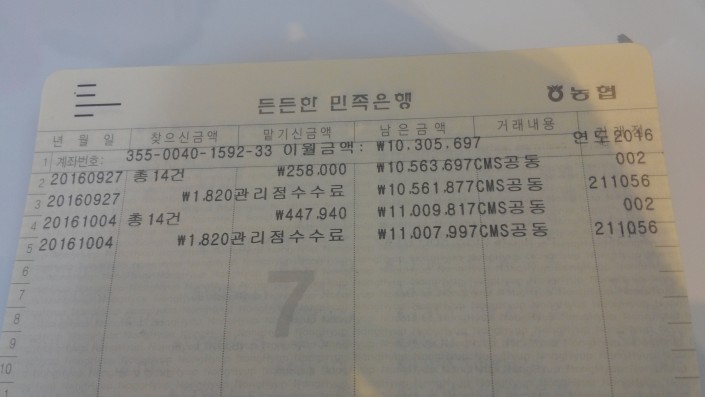 든든한 민족은행 농협
년 월 일 찾으신금액 맡기신금액 남은금액 거래내용 거래점
1 계좌번호: 355-0040-1592-33 이월금액: ₩10.305.697 연도2016
2 20160927 총14건 ₩258.000 ₩10.563.697CMS공동 002
3 20160927 ₩1.820관리점수수료 ₩10.561.877CMS공동 211056
4 20161004 총14건 ₩447.940 ₩11.009.817CMS공동 002
5 20161004 ₩1.820관리점수수료 ₩11.007.997CMS공동 211056
6
7
8
9
10
7